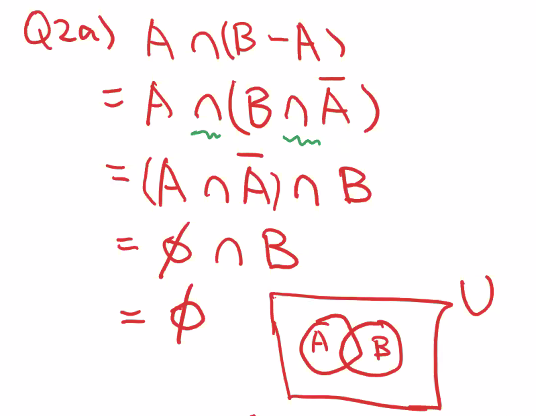 Q2a) A ∩ (B - A)
= A ∩ (B ∩ A̅)
= (A ∩ A̅) ∩ B
= ϕ ∩ B
= ϕ
U
A B